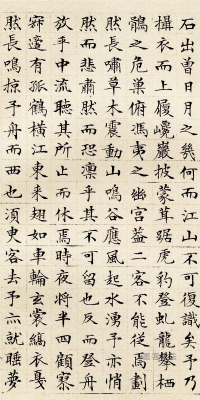 石出曾日月之幾何而江山不可復識矣予乃
攝衣而上履巉巖披蒙茸踞虎豹登虬龍攀栖
鶻之危巢俯馮夷之幽宮蓋二客不能從焉劃
然長嘯草木震動山鳴谷應風起水湧予亦悄
然而悲肅然而恐凜乎其不可留也反而登舟
放乎中流聽其所止而休焉時夜將半四顧寂
寥適有孤鶴橫江東來翅如車輪玄裳縞衣戛
然長鳴掠予舟而西也須臾客去予亦就睡夢